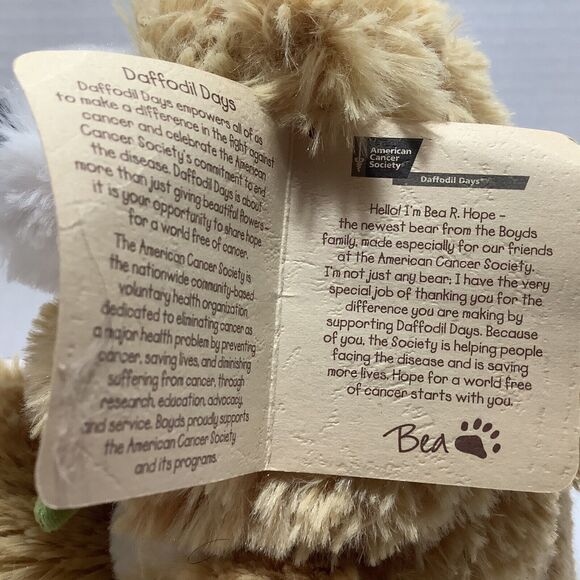 Daffodil Days
Daffodil Days empowers all of us
to make a difference in the fight against
cancer and celebrate the American
Cancer Society's commitment to end
the disease. Daffodil Days is about
more than just giving beautiful flowers -
it is your opportunity to share hope
for a world free of cancer.
The American Cancer Society is
the nationwide community-based
voluntary health organization
dedicated to eliminating cancer as
a major health problem by preventing
cancer, saving lives, and diminishing
suffering from cancer, through
research, education, advocacy,
and service. Boyds proudly supports
the American Cancer Society
and its programs.
American
Cancer
Society®
Daffodil Days™
Hello! I'm Bea R. Hope -
the newest bear from the Boyds
family, made especially for our friends
at the American Cancer Society.
I'm not just any bear; I have the very
special job of thanking you for the
difference you are making by
supporting Daffodil Days. Because
of you, the Society is helping people
facing the disease and is saving
more lives. Hope for a world free
of cancer starts with you.
Bea